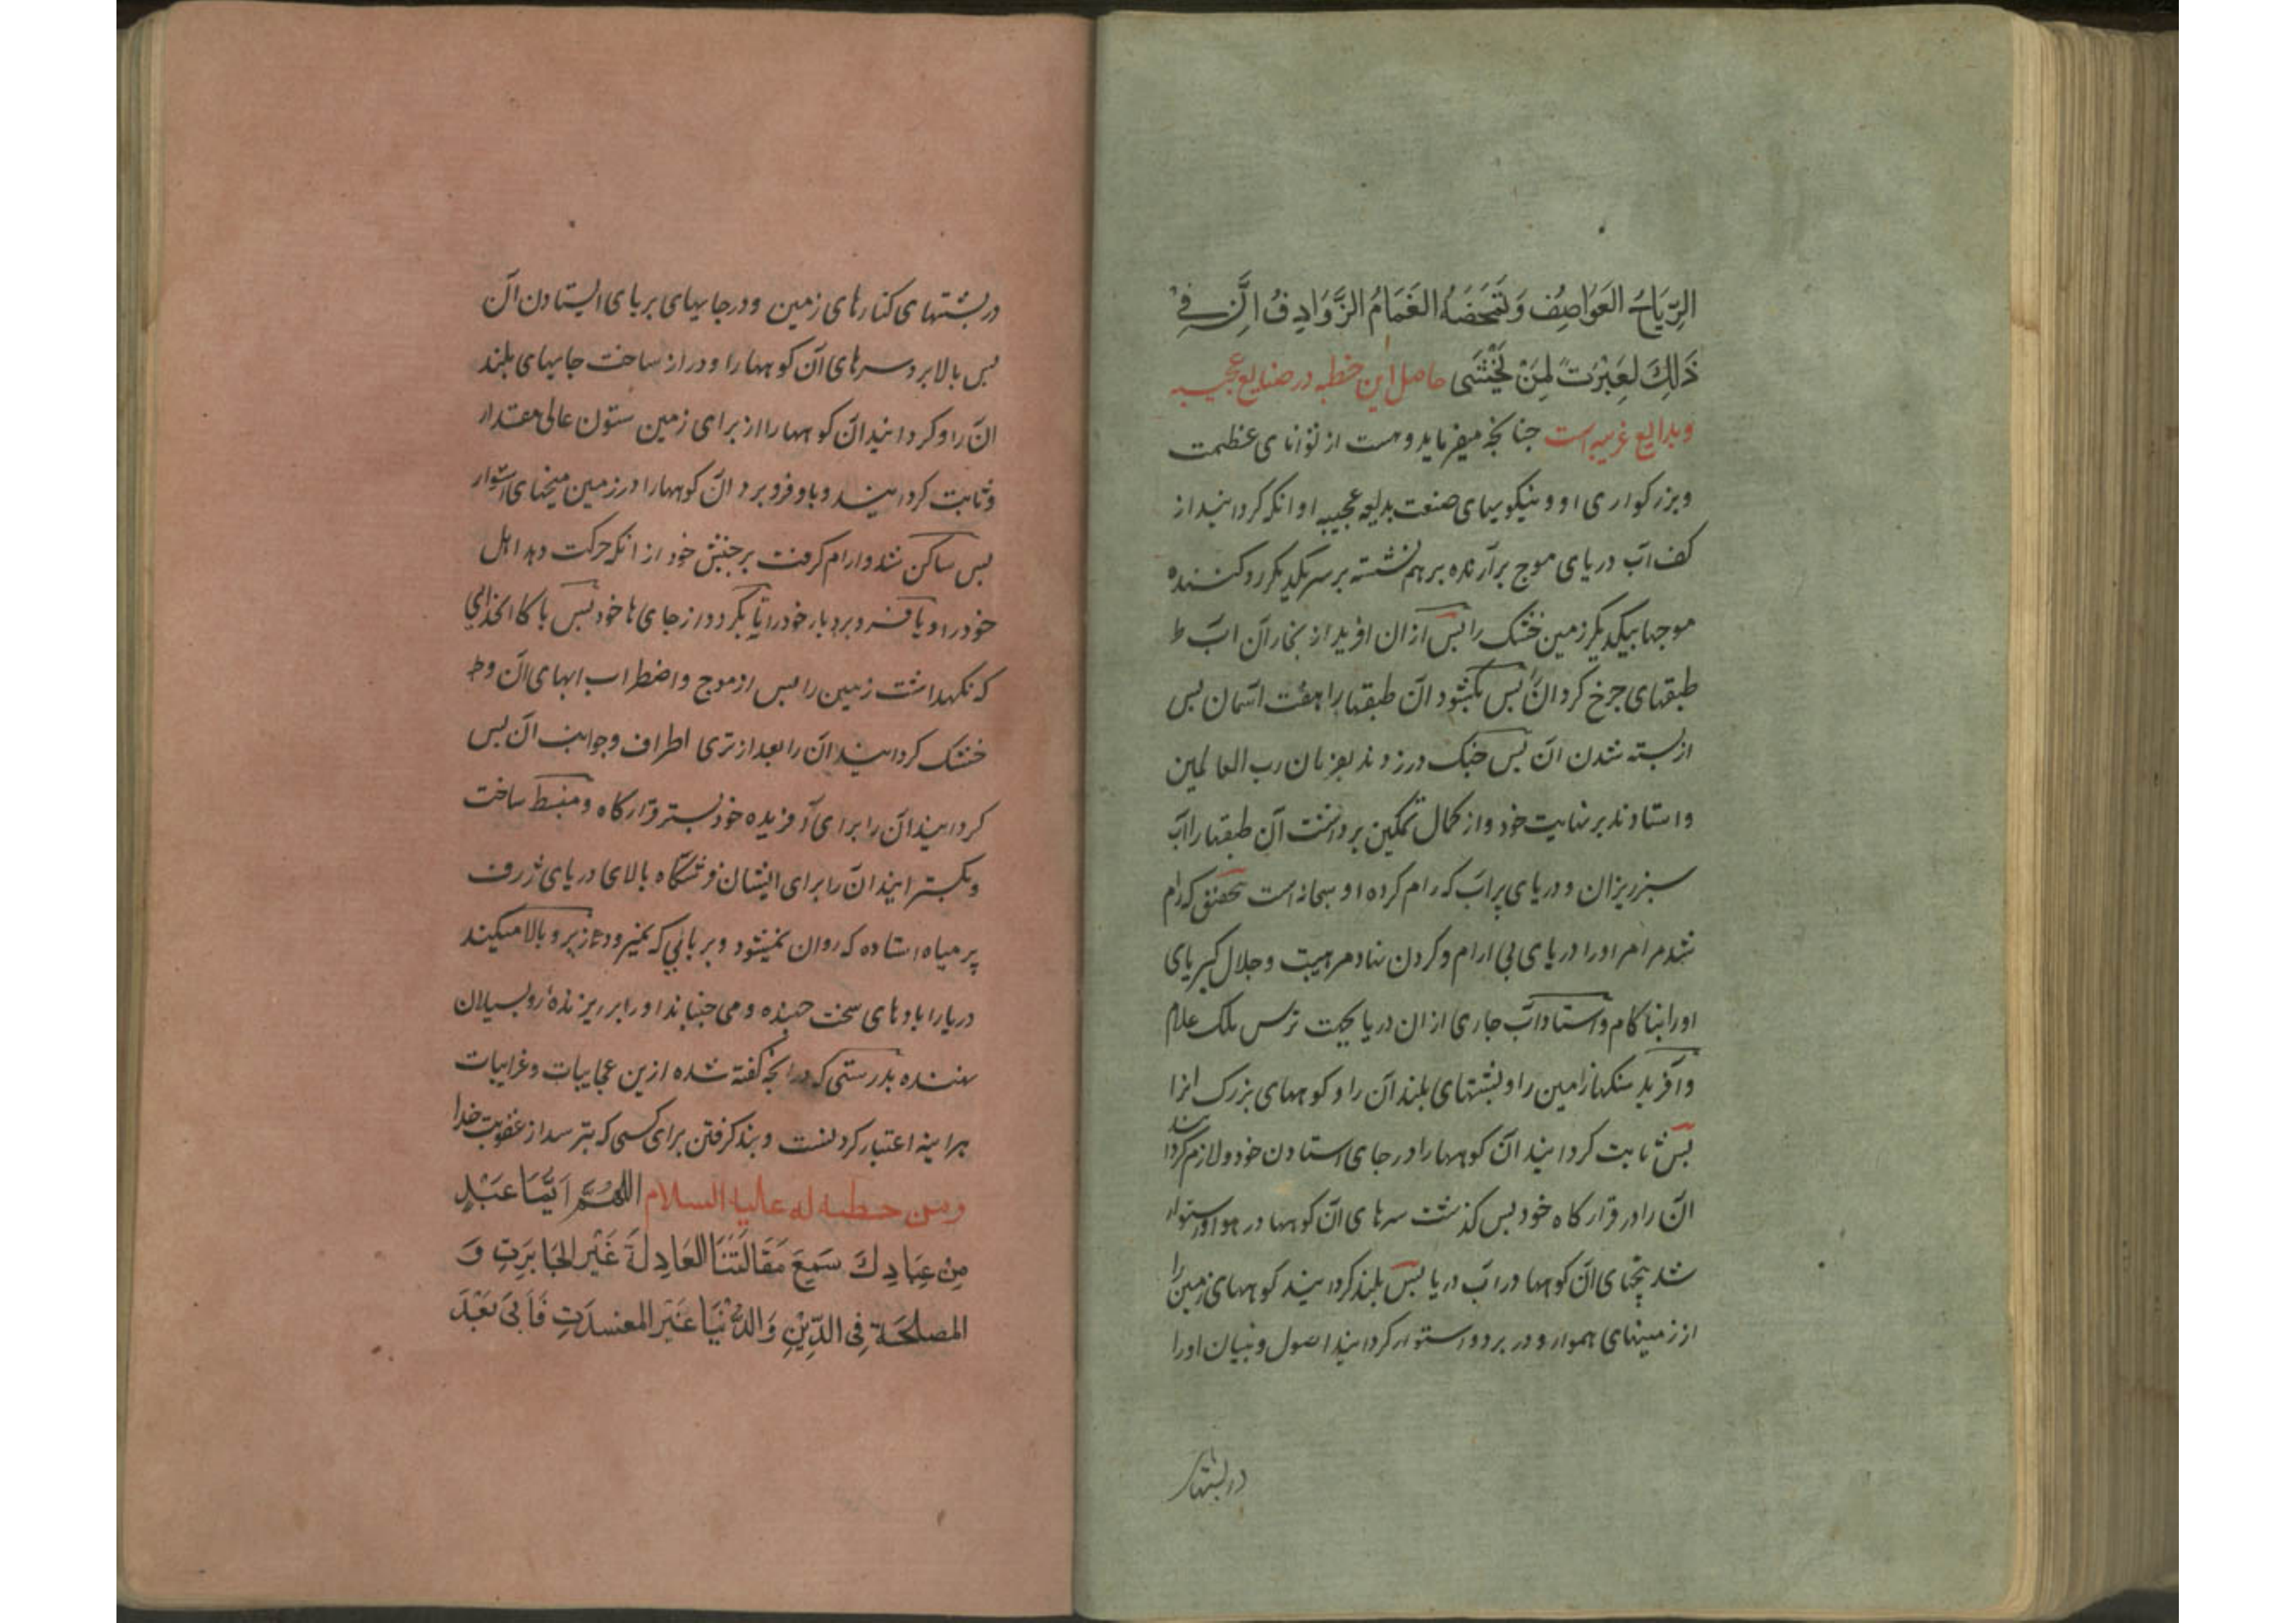 الرِّيَاحُ العَوَاصِفُ وَتَمخَضُهُ الغَمَامُ الزَّوَادِفُ اِنَّ فِي
ذَلِكَ لَعِبْرَتً لِمَنْ يَخْشَى حاصل این خطبه در صنایع عجیبه
وبدایع غریبه است جنانجه میفرماید وهست از توانای عظمت
وبزرکواری او ونیکوییهای صنعت بدیعه عجیبه او انکه کردانید از
کف آب دریای موج برآرنده برهم نشسته بر سر یکدیکر رد کننده
موجها بیکدیکر زمین خشک را بس ازان افرید از بخار آن اب
طبقهای جرخ کردان بس بکشود آن طبقها را هفت اسمان بس
از بسته شدن آن بس جنک در زدند بفرمان رب العالمین
واستادند بر نهایت خود واز کمال تمکین برداشت آن طبقها را اب
سبز ریزان ودریای پر اب که رام کرده او سبحانه است تحقیق که رام
شد مر امر او را دریای بی ارام وکردن نهاد مر هیبت وجلال کبریای
او را بناکام واستاد آب جاری ازان دریا بجهت ترس ملک علام
وآفرید سنکهازمین را وبشتهای بلند آن را وکوههای بزرک انرا
بس ثابت کردانید ان کوهها را در جای استادن خود ولازم کردانید
ان را در قرارکاه خود بس کذشت سرهای ان کوهها در هوا واستوار
شد بیخهای ان کوهها در اب دریا بس بلند کردانید کوههای زمین را
از زمینهای هموار ودر برد واستوار کردانید اصول وبنیان او را
در بشتها
در بشتهای کنارهای زمین ودر جایهای بر بای ایستادن آن
بس بالا برد سرهای آن کوهها را ودراز ساخت جایهای بلند
ان را وکردانید ان کوهها را از برای زمین ستون عالی مقدار
وثابت کردانید وباو فرو برد ان کوهها را در زمین میخهای استوار
بس ساکن شد وارام کرفت بر جنبش خود از انکه حرکت دهد اهل
خود را ویا فرو برد بار خود را یا بکردد از جای ها خود بس باکا الخدایی
که نکهداشت زمین را بس از موج واضطراب ابهای آن
خشک کردانید ان را بعد از تری اطراف وجوانب ان بس
کردانید ان را برای آفریده خود بستر قرارکاه ومنبسط ساخت
وبکسترانید ان را برای ایشان فرشکاه بالای دریای ژرف
پر میاه استاده که روان نمیشود وبر بائی که نمیرود زیر وبالا میکند
دریا را بادهای سخت جهنده ومی جنباند او را ابر ریزنده رو بسیلان
نهنده بدرستی که در انجه کفته شده ازین عجایبات وغرایبات
هراینه اعتبار کردنست وبند کرفتن برای کسی که بترسد از عقوبت خدا
ومن خطبه له علیه السلام اللهُمَّ اَیُّمَا عَبْدٍ
مِن عِبَادِكَ سَمِعَ مَقَالَتَنَا العَادِلَةَ غَيْرَ الجَابِرَتِ وَ
المصلِحَة فِى الدِّيْنِ وَالدُّنْيَا غَيْرَ المفسدَتِ فَاَبَىَ بَعْدَ